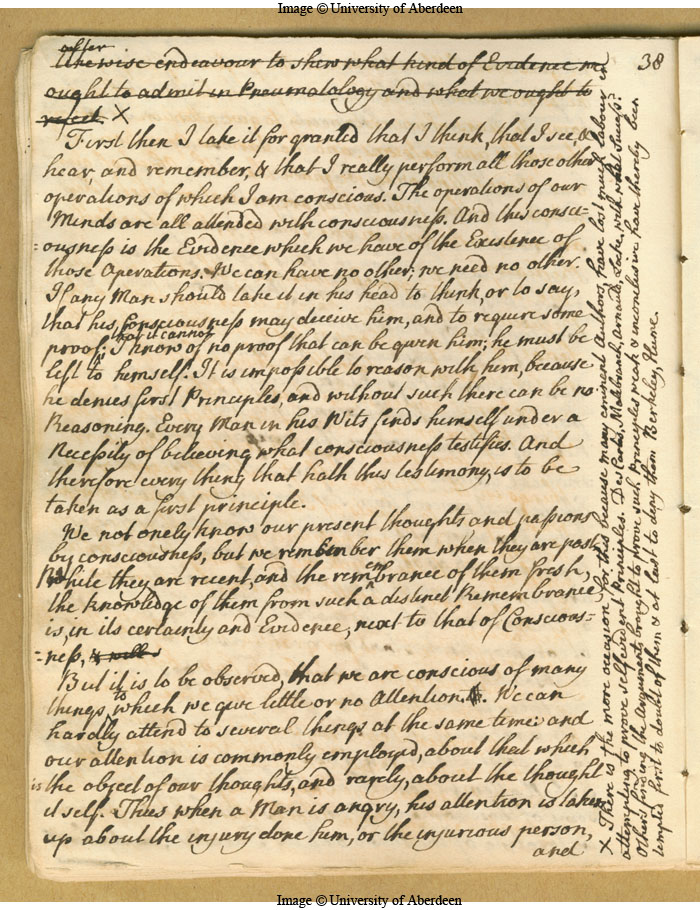 Image © University of Aberdeen
38
after
likewise endeavour to shew what kind of Evidence we
ought to admit in Pneumatology and what we ought to
reject. X
First then I take it for granted that I think, that I see, &
hear, and remember, & that I really perform all those other
operations of which I am conscious. The operations of our
Minds are all attended with consciousness. And this consci-
=ousness is the Evidence which we have of the Existence of
those Operations. We can have no other; we need no other.
If any Man should take it in his head to think, or to say,
that his Consciousness may deceive him, and to require some
that it cannot
proof; I know of no proof that can be given him; he must be
left to himself. It is impossible to reason with him, because
he denies first Principles, and without such there can be no
Reasoning. Every Man in his Wits finds himself under a
Necessity of believing what consciousness testifies. And
therefore every thing that hath this testimony, is to be
taken as a first principle.
We not onely know our present thoughts and passions
by consciousness, but we remember them when they are past.
While they are recent, and the remembrance of them fresh,
the knowledge of them from such a distinct Remembrance
is, in its certainty and Evidence, next to that of Conscious=
=ness, & will
But it is to be observed, that we are conscious of many
things to which we give little or no Attention. We can
hardly attend to several things at the same time: and
our attention is commonly employed, about that which
is the object of our thoughts, and rarely, about the thought
it self. Thus when a Man is angry, his attention is taken
up about the injury done him, or the injurious person,
and
X There is the more occasion for this because many eminent Authors, have lost much labour in
attempting to prove selfevident Principles. Des Cartes, Malebranch, Arnauld, Locke, with what Success?
Others finding the Arguments brought to prove such Principles weak & inconclusive have thereby been
tempted first to doubt of them & at last to deny them Berkeley, Hume.
Image © University of Aberdeen